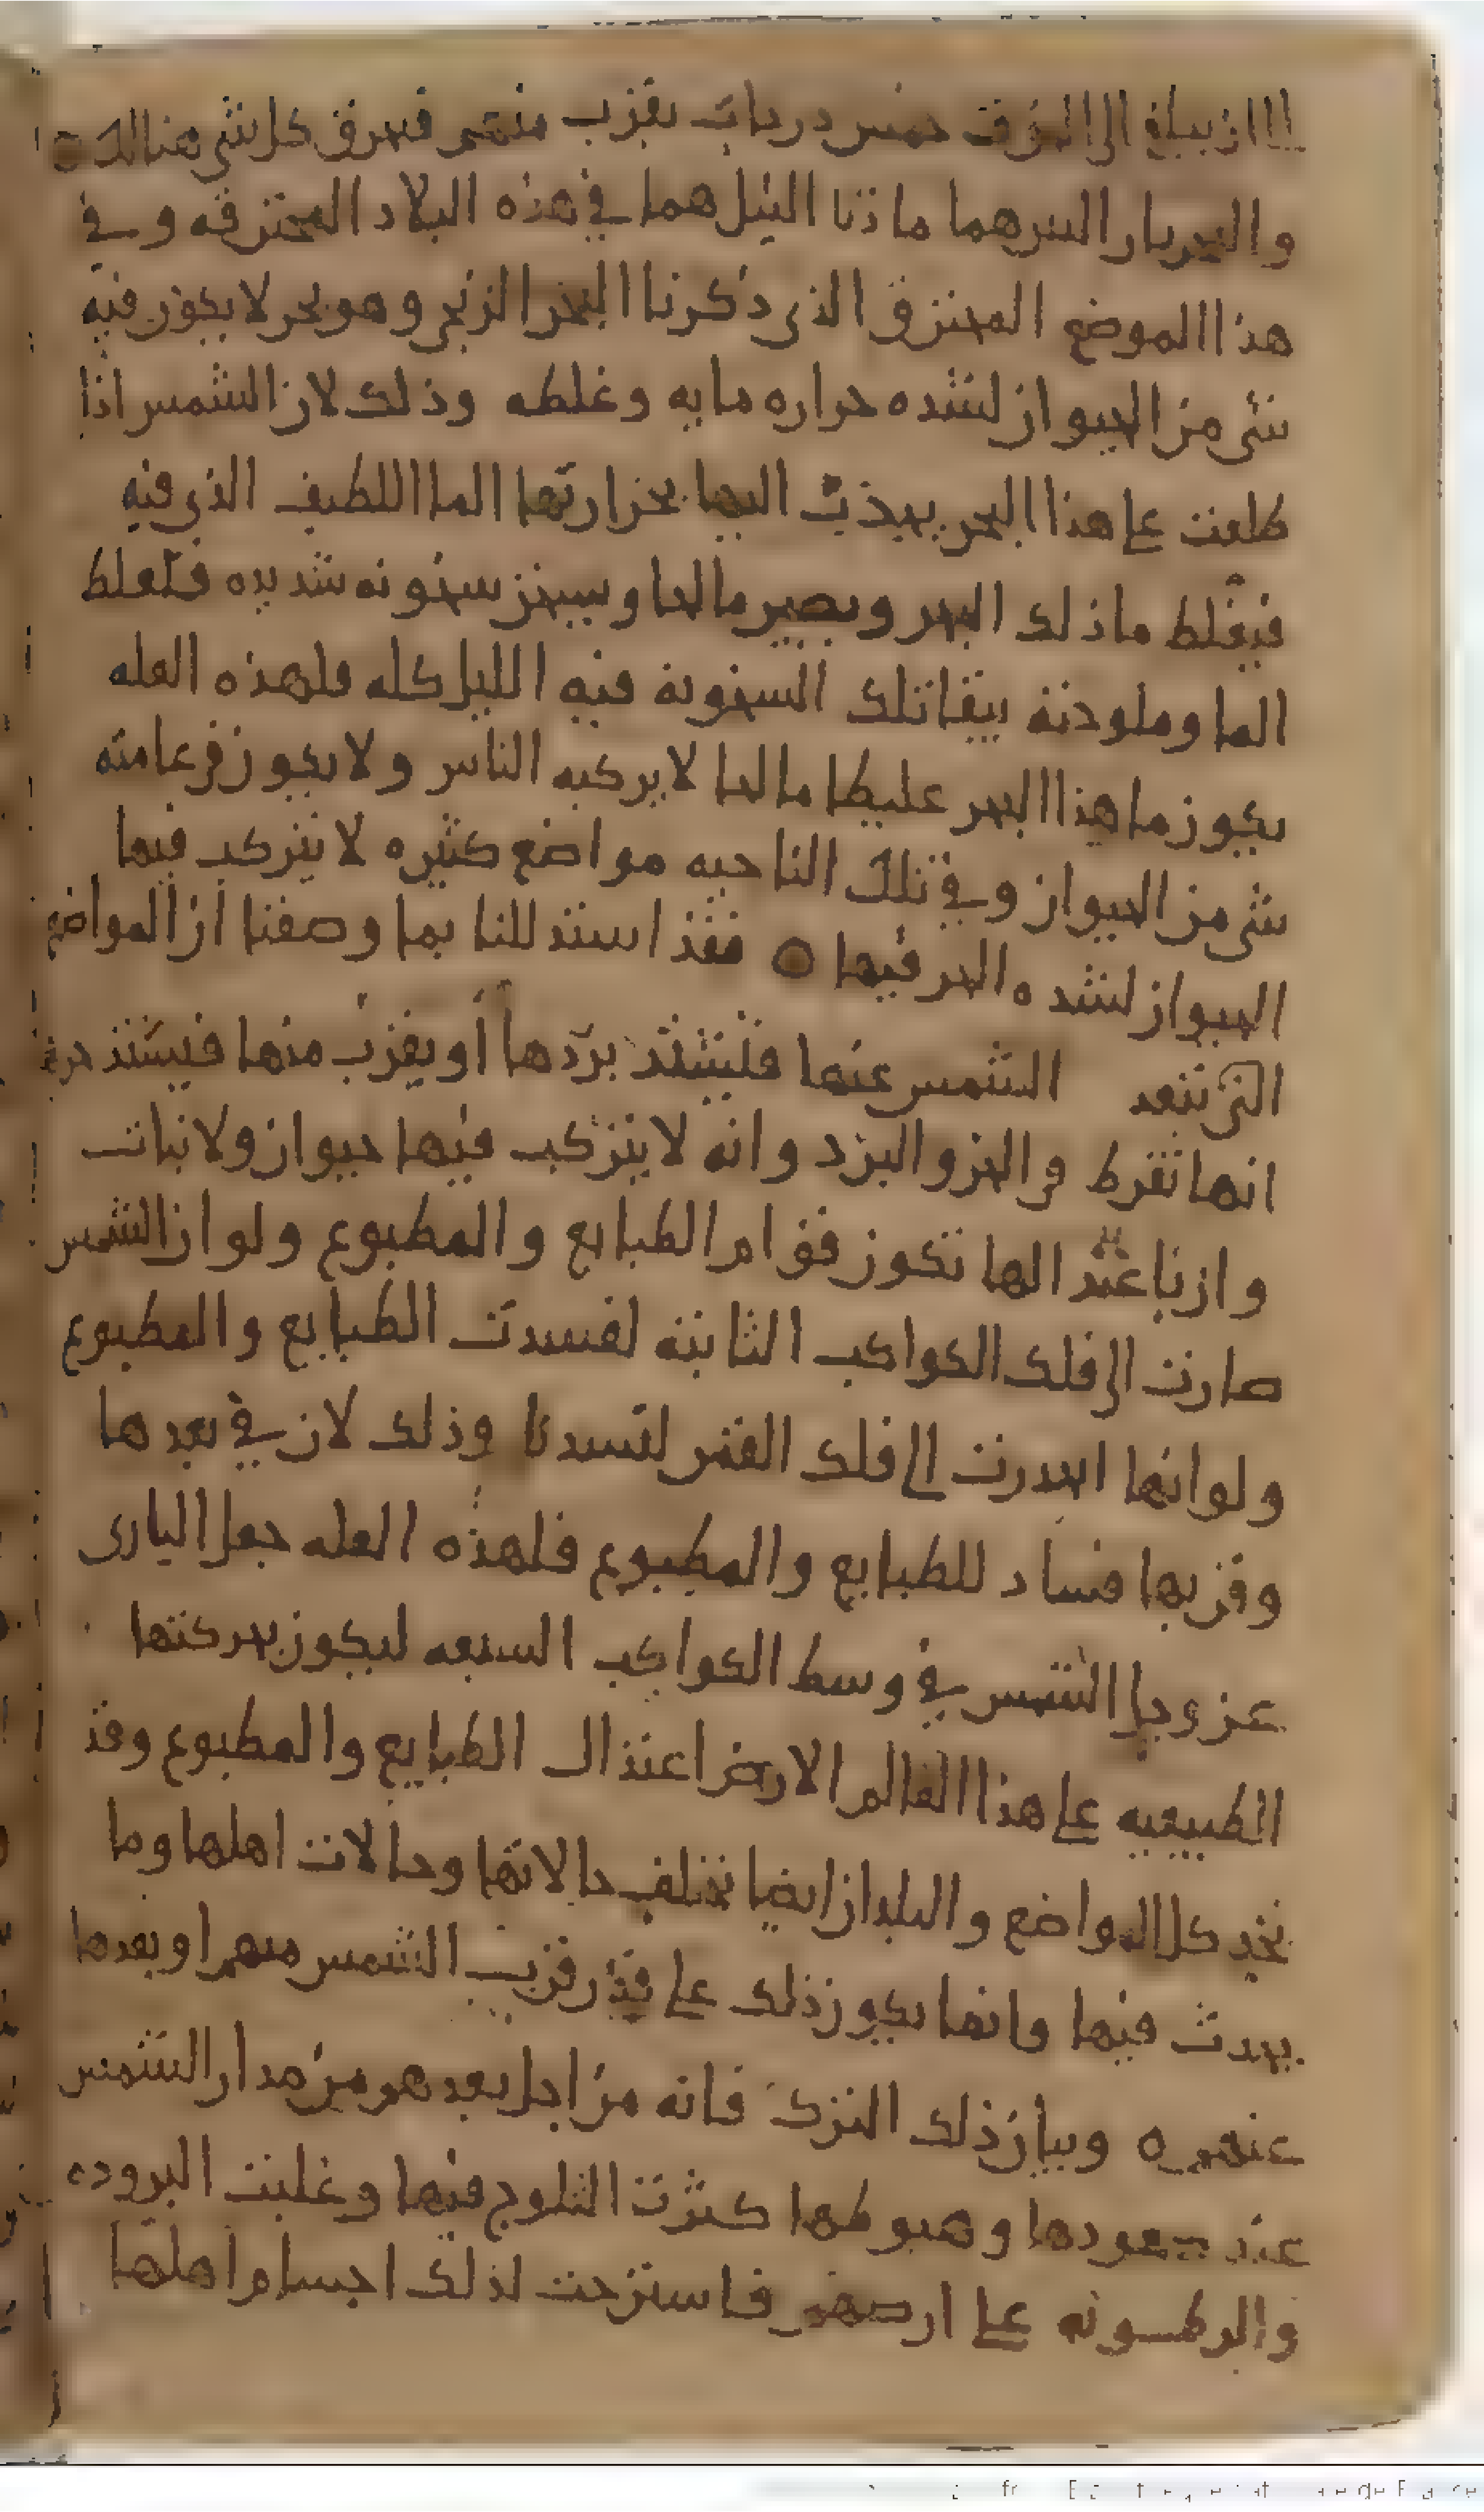 الى ان يبلغ الى الحوت خمس درجات بقرب منهم فيحرق كل شي هنالك ه
والبحريار اللذين هما مادتا النيل هما في هذه البلاد المحترقه وفي
هذا الموضع المحترق الذي ذكرنا البحر الزنجي وهو بحر لا يكون فيه
شي من الحيوان لشده حراره مايه وغلظه وذلك لان الشمس اذا
طلعت على هذا البحر يجذب اليها بحرارتها الما اللطيف الذي فيه
فيغلظ ما ذلك البحر ويصير مالحا ويسخن سخونه شديده فتغلظ
الما وملوحته يبقا تلك السخونة فيه الليل كله فلهذه العله
يكون ما هذا البحر غليظا مالحا لا يركبه الناس ولا يكون في عامته
شي من الحيوان وفي تلك الناحيه مواضع كثيره لا يتركب فيها
الحيوان لشده الحر فيها ه فقد استدللنا بما وصفنا ان المواضع
التي تبعد الشمس عنها فيشتد بردها او يقرب منها فيشتد حرها
انها تفرط في الحر والبرد وانه لا يتركب فيها حيوان ولا نبات
وان باعتدالها تكون قوام الطبايع والمطبوع ولو ان الشمس
صارت الى فلك الكواكب الثابته لفسدت الطبايع والمطبوع
ولو انها انحدرت الى فلك القمر لفسدتا وذلك لان في بعدها
وقربها فساد للطبايع والمطبوع فلهذه العله جعل الباري
عز وجل الشمس في وسط الكواكب السبعه ليكون بحركتها
الطبيعيه على هذا العالم الارضي اعتدال الطبايع والمطبوع وقد
نجد كل المواضع والبلدان ايضا تختلف حالاتها وحالات اهلها وما
يحدث فيها وانما يكون ذلك على قدر قرب الشمس منهم او بعدها
عنهم ه وبيان ذلك الترك فانه من اجل بعدهم من مدار الشمس
عند صعودها وهبوطها كثرت الثلوج فيها وغلبت البروده
والرطوبه على ارضهم فاسترخت لذلك اجسام اهلها